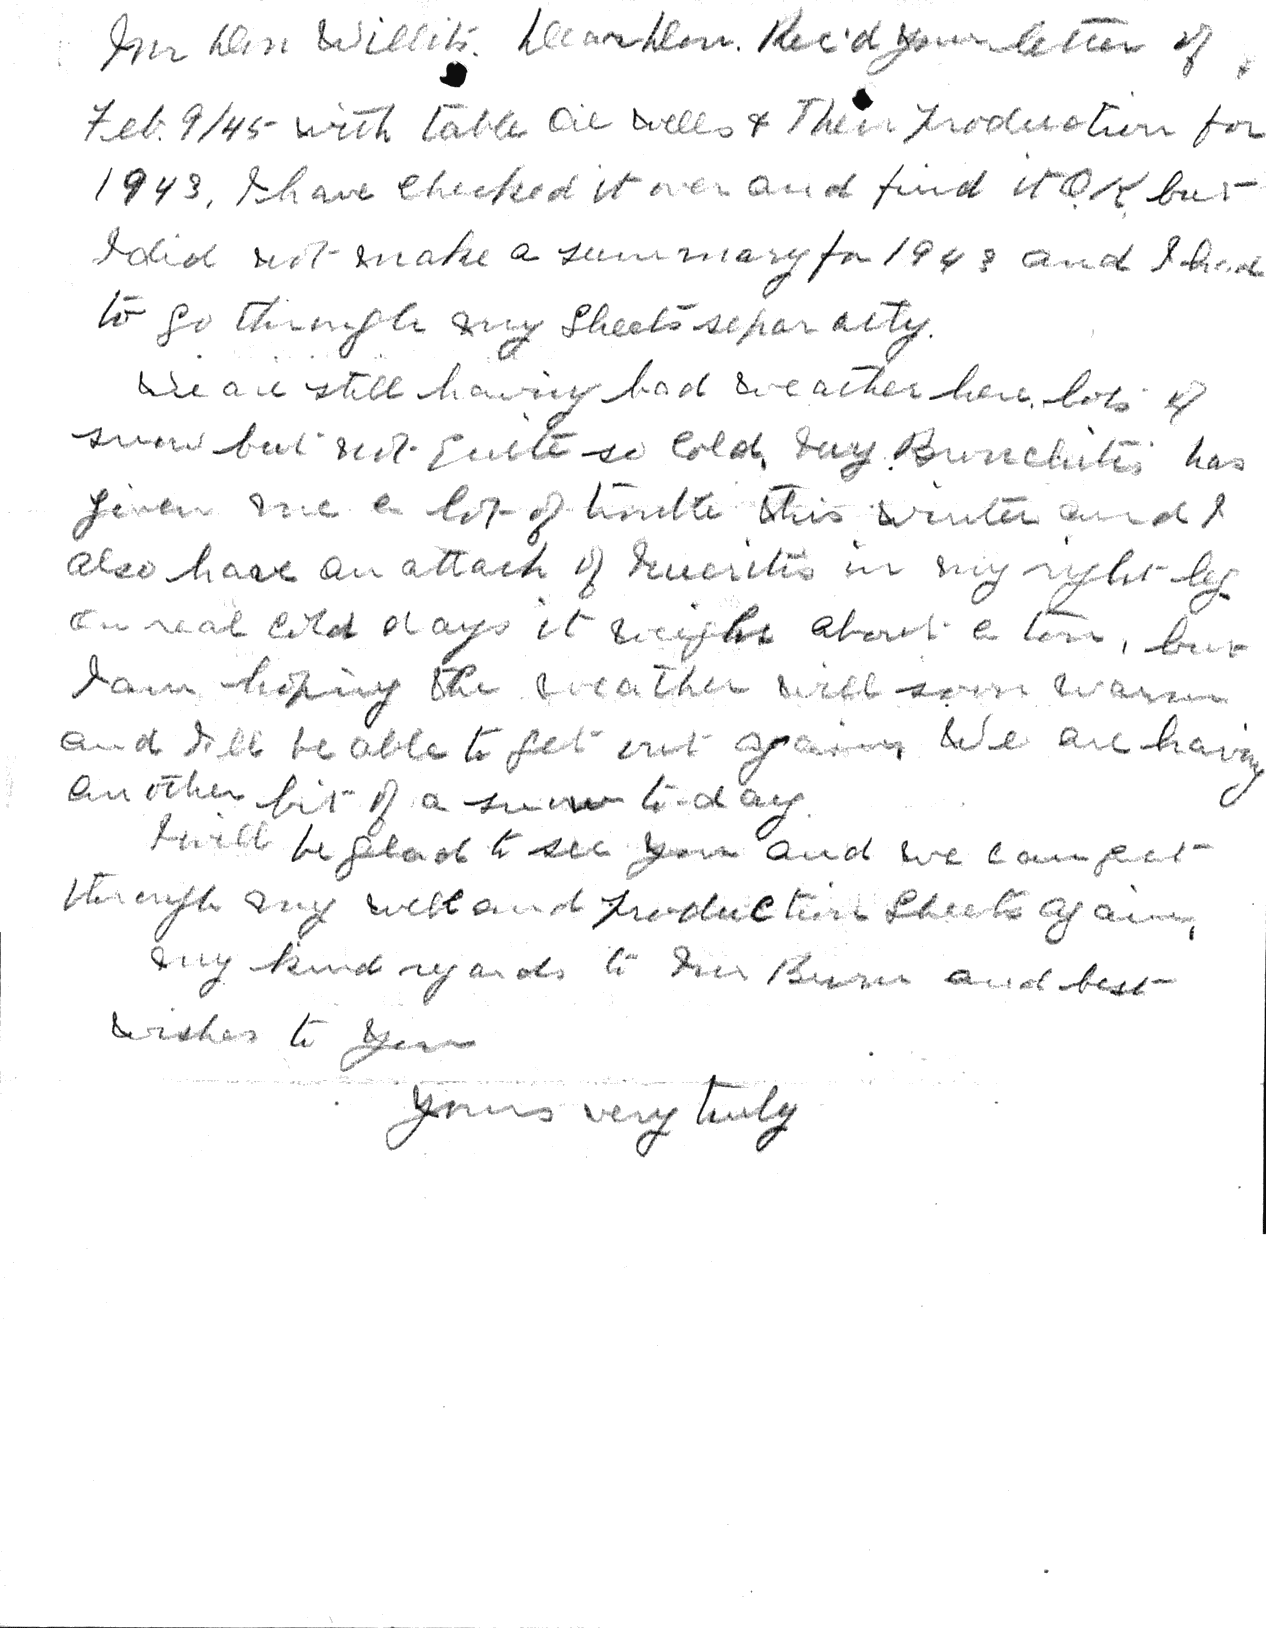 Mr Don Willits. Dear Don. Rec'd your letter of
Feb. 9/45 with table Oil wells & Their Production for
1943, I have checked it over and find it O.K. but
I did not make a summary for 1943 and I had
to go through my Sheets separatly.
We are still having bad weather here, lots of
snow but not quite so cold, my Bronchitis has
given me a lot of trouble this winter and I
also have an attack of Nueritis in my right leg
on real cold days it weighs about a ton, but
I am hoping the weather will soon warm
and I'll be able to get out again, We are having
another bit of a snow to-day.
I will be glad to see you and we can get
through my well and Production Sheets again,
my kind regards to Mr Burn and best
wishes to you
Yours very truly